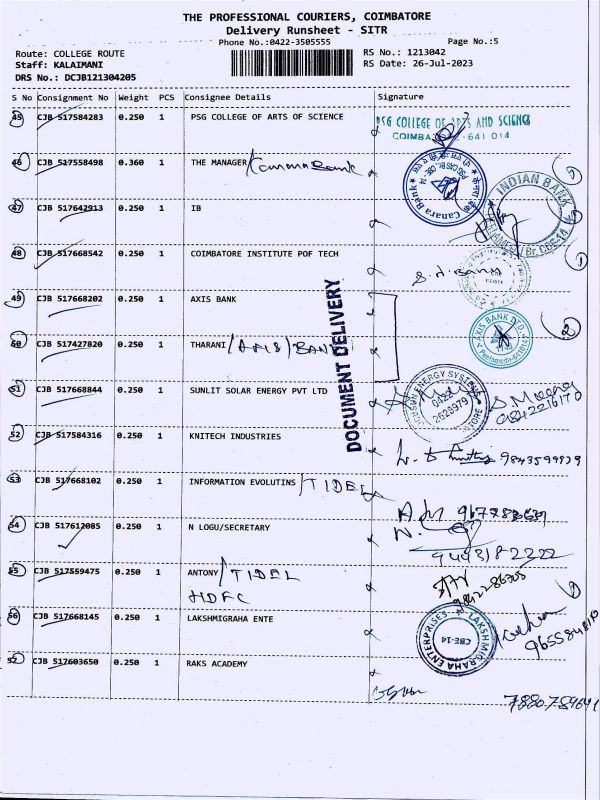 THE PROFESSIONAL COURIERS, COIMBATORE
Delivery Runsheet - SITR
Phone No.:0422-3505555 Page No.:5
Route: COLLEGE ROUTE RS No.: 1213042
Staff: KALAIMANI RS Date: 26-Jul-2023
DRS No.: DCJB121304205
S No Consignment No Weight PCS Consignee Details Signature
45 CJB 517584283 0.250 1 PSG COLLEGE OF ARTS OF SCIENCE
PSG COLLEGE OF ARTS AND SCIENCE
COIMBATORE - 641 014
46 CJB 517558498 0.360 1 THE MANAGER/Canara Bank
Canara Bank
47 CJB 517642913 0.250 1 IB
INDIAN BANK
48 CJB 517668542 0.250 1 COIMBATORE INSTITUTE POF TECH
49 CJB 517668202 0.250 1 AXIS BANK
DOCUMENT DELIVERY
AXIS BANK LTD.
2
50 CJB 517427820 0.250 1 THARANI/AXIS/BANK
51 CJB 517668844 0.250 1 SUNLIT SOLAR ENERGY PVT LTD
ENERGY SYSTEMS
0422
2629979
STORE
52 CJB 517584316 0.250 1 KNITECH INDUSTRIES
53 CJB 517668102 0.250 1 INFORMATION EVOLUTINS/TIDEL
54 CJB 517612085 0.250 1 N LOGU/SECRETARY
9443182222
55 CJB 517559475 0.250 1 ANTONY/TIDEL
HDFC
56 CJB 517668145 0.250 1 LAKSHMIGRAHA ENTE
LAKSHMIGRAHA ENTERPRISES
CBE-14
57 CJB 517603650 0.250 1 RAKS ACADEMY